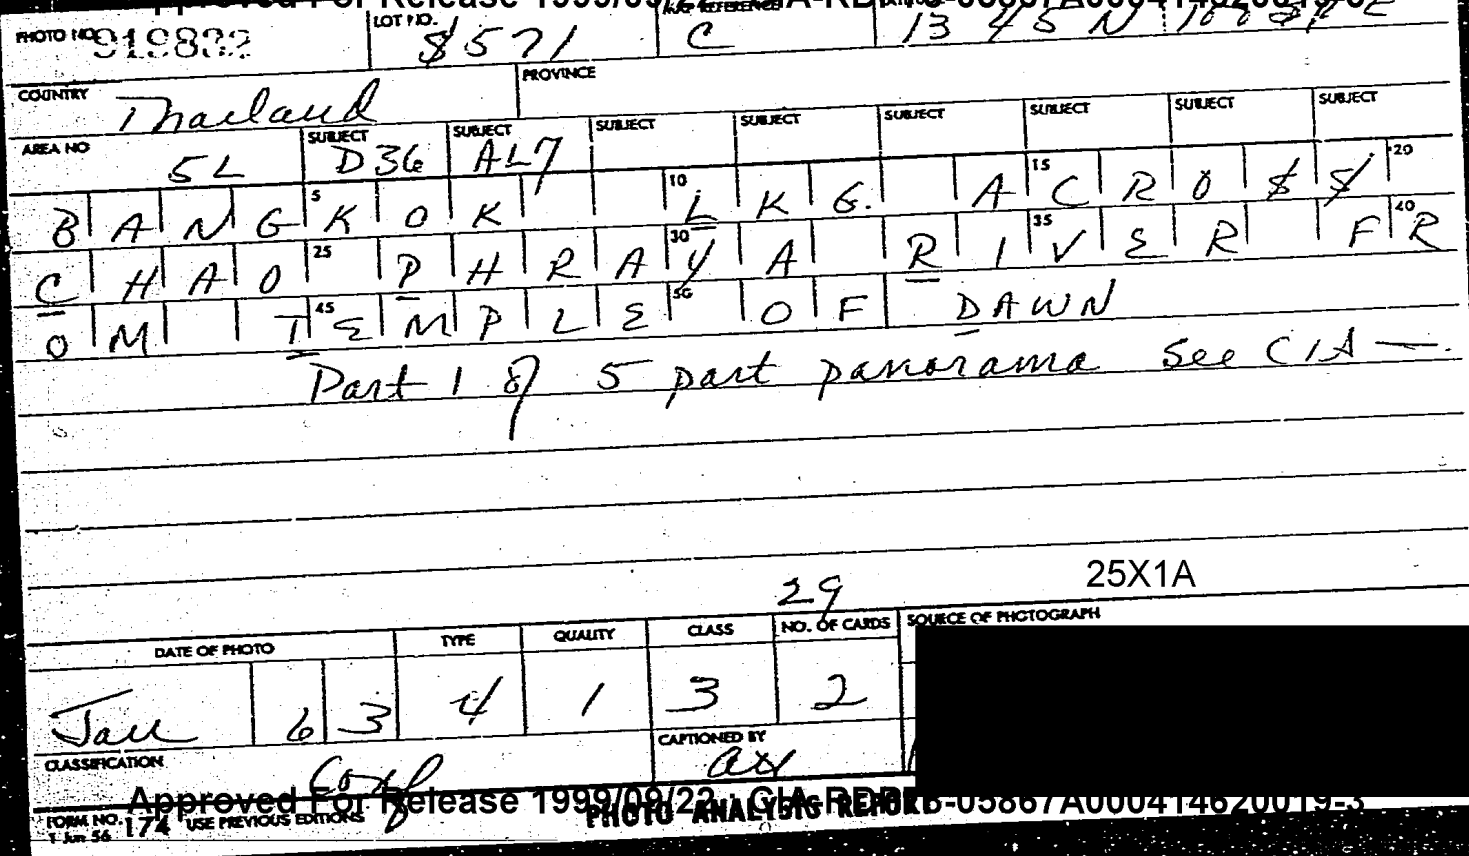 Approved For Release 1999/09/22 : CIA-RDP
PHOTO NO. 919832 LOT NO. 8571 MAP REFERENCE C 13 45 N
COUNTRY Thailand PROVINCE
AREA NO 5L SUBJECT D36 SUBJECT AL7 SUBJECT SUBJECT SUBJECT SUBJECT SUBJECT SUBJECT
BANGKOK LKG. ACROSS
CHAO PHRAYA RIVER FR
OM TEMPLE OF DAWN
Part 1 of 5 part panorama See CIA —.
25X1A
29
DATE OF PHOTO TYPE QUALITY CLASS NO. OF CARDS SOURCE OF PHOTOGRAPH
Jan 63 4 1 3 2
CLASSIFICATION Conf CAPTIONED BY
Approved For Release 1999/09/22 : CIA-RDP B-05867A000414620019-3
FORM NO. 174 USE PREVIOUS EDITIONS PHOTO ANALYSIS REPORT
1 Jun 56